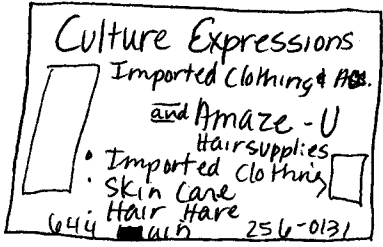 Culture Expressions
Imported Clothing & Acc.
and Amaze-U
Hair supplies
• Imported Clothing
• Skin Care
• Hair Hare
644 ain 256-0131